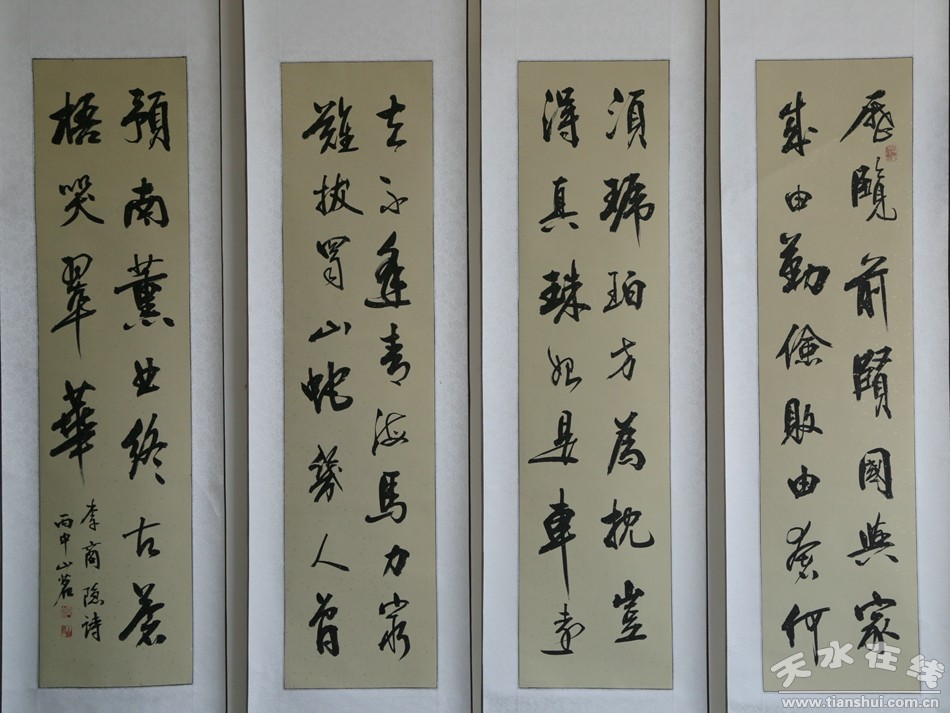 歷覽前賢國與家
成由勤儉敗由奢何
須琥珀方為枕豈
得真珠始是車運
去不逢青海馬力窮
難拔蜀山蛇幾人曾
預南薰曲終古蒼
梧哭翠華
李商隱詩
丙申山茗
天水在线
www.tianshui.com.cn